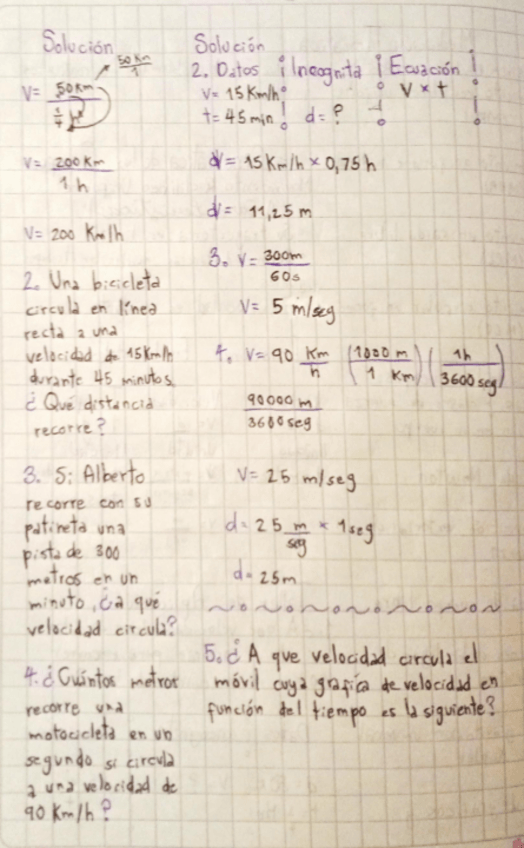 Solución
50 Km
1
V= 50 Km
1/4 h
V= 200 Km
1 h
V= 200 Km/h
2. Una bicicleta
circula en línea
recta a una
velocidad de 15Km/h
durante 45 minutos.
¿Qué distancia
recorre?
3. Si Alberto
recorre con su
patineta una
pista de 300
metros en un
minuto, ¿a qué
velocidad circula?
4. ¿Cuántos metros
recorre una
motocicleta en un
segundo si circula
a una velocidad de
90 Km/h?
Solución
2. Datos Incognita Ecuación
V= 15 Km/h V x t
t= 45 min d= ?
d= 15 Km/h x 0,75 h
d= 11,25 m
3. V= 300m
60s
V= 5 m/seg
4. V= 90 Km/h (1000 m / 1 Km) (1h / 3600 seg)
90000 m
3600 seg
V= 25 m/seg
d= 25 m/seg x 1seg
d= 25m
5. ¿A que velocidad circula el
móvil cuya grafica de velocidad en
función del tiempo es la siguiente?